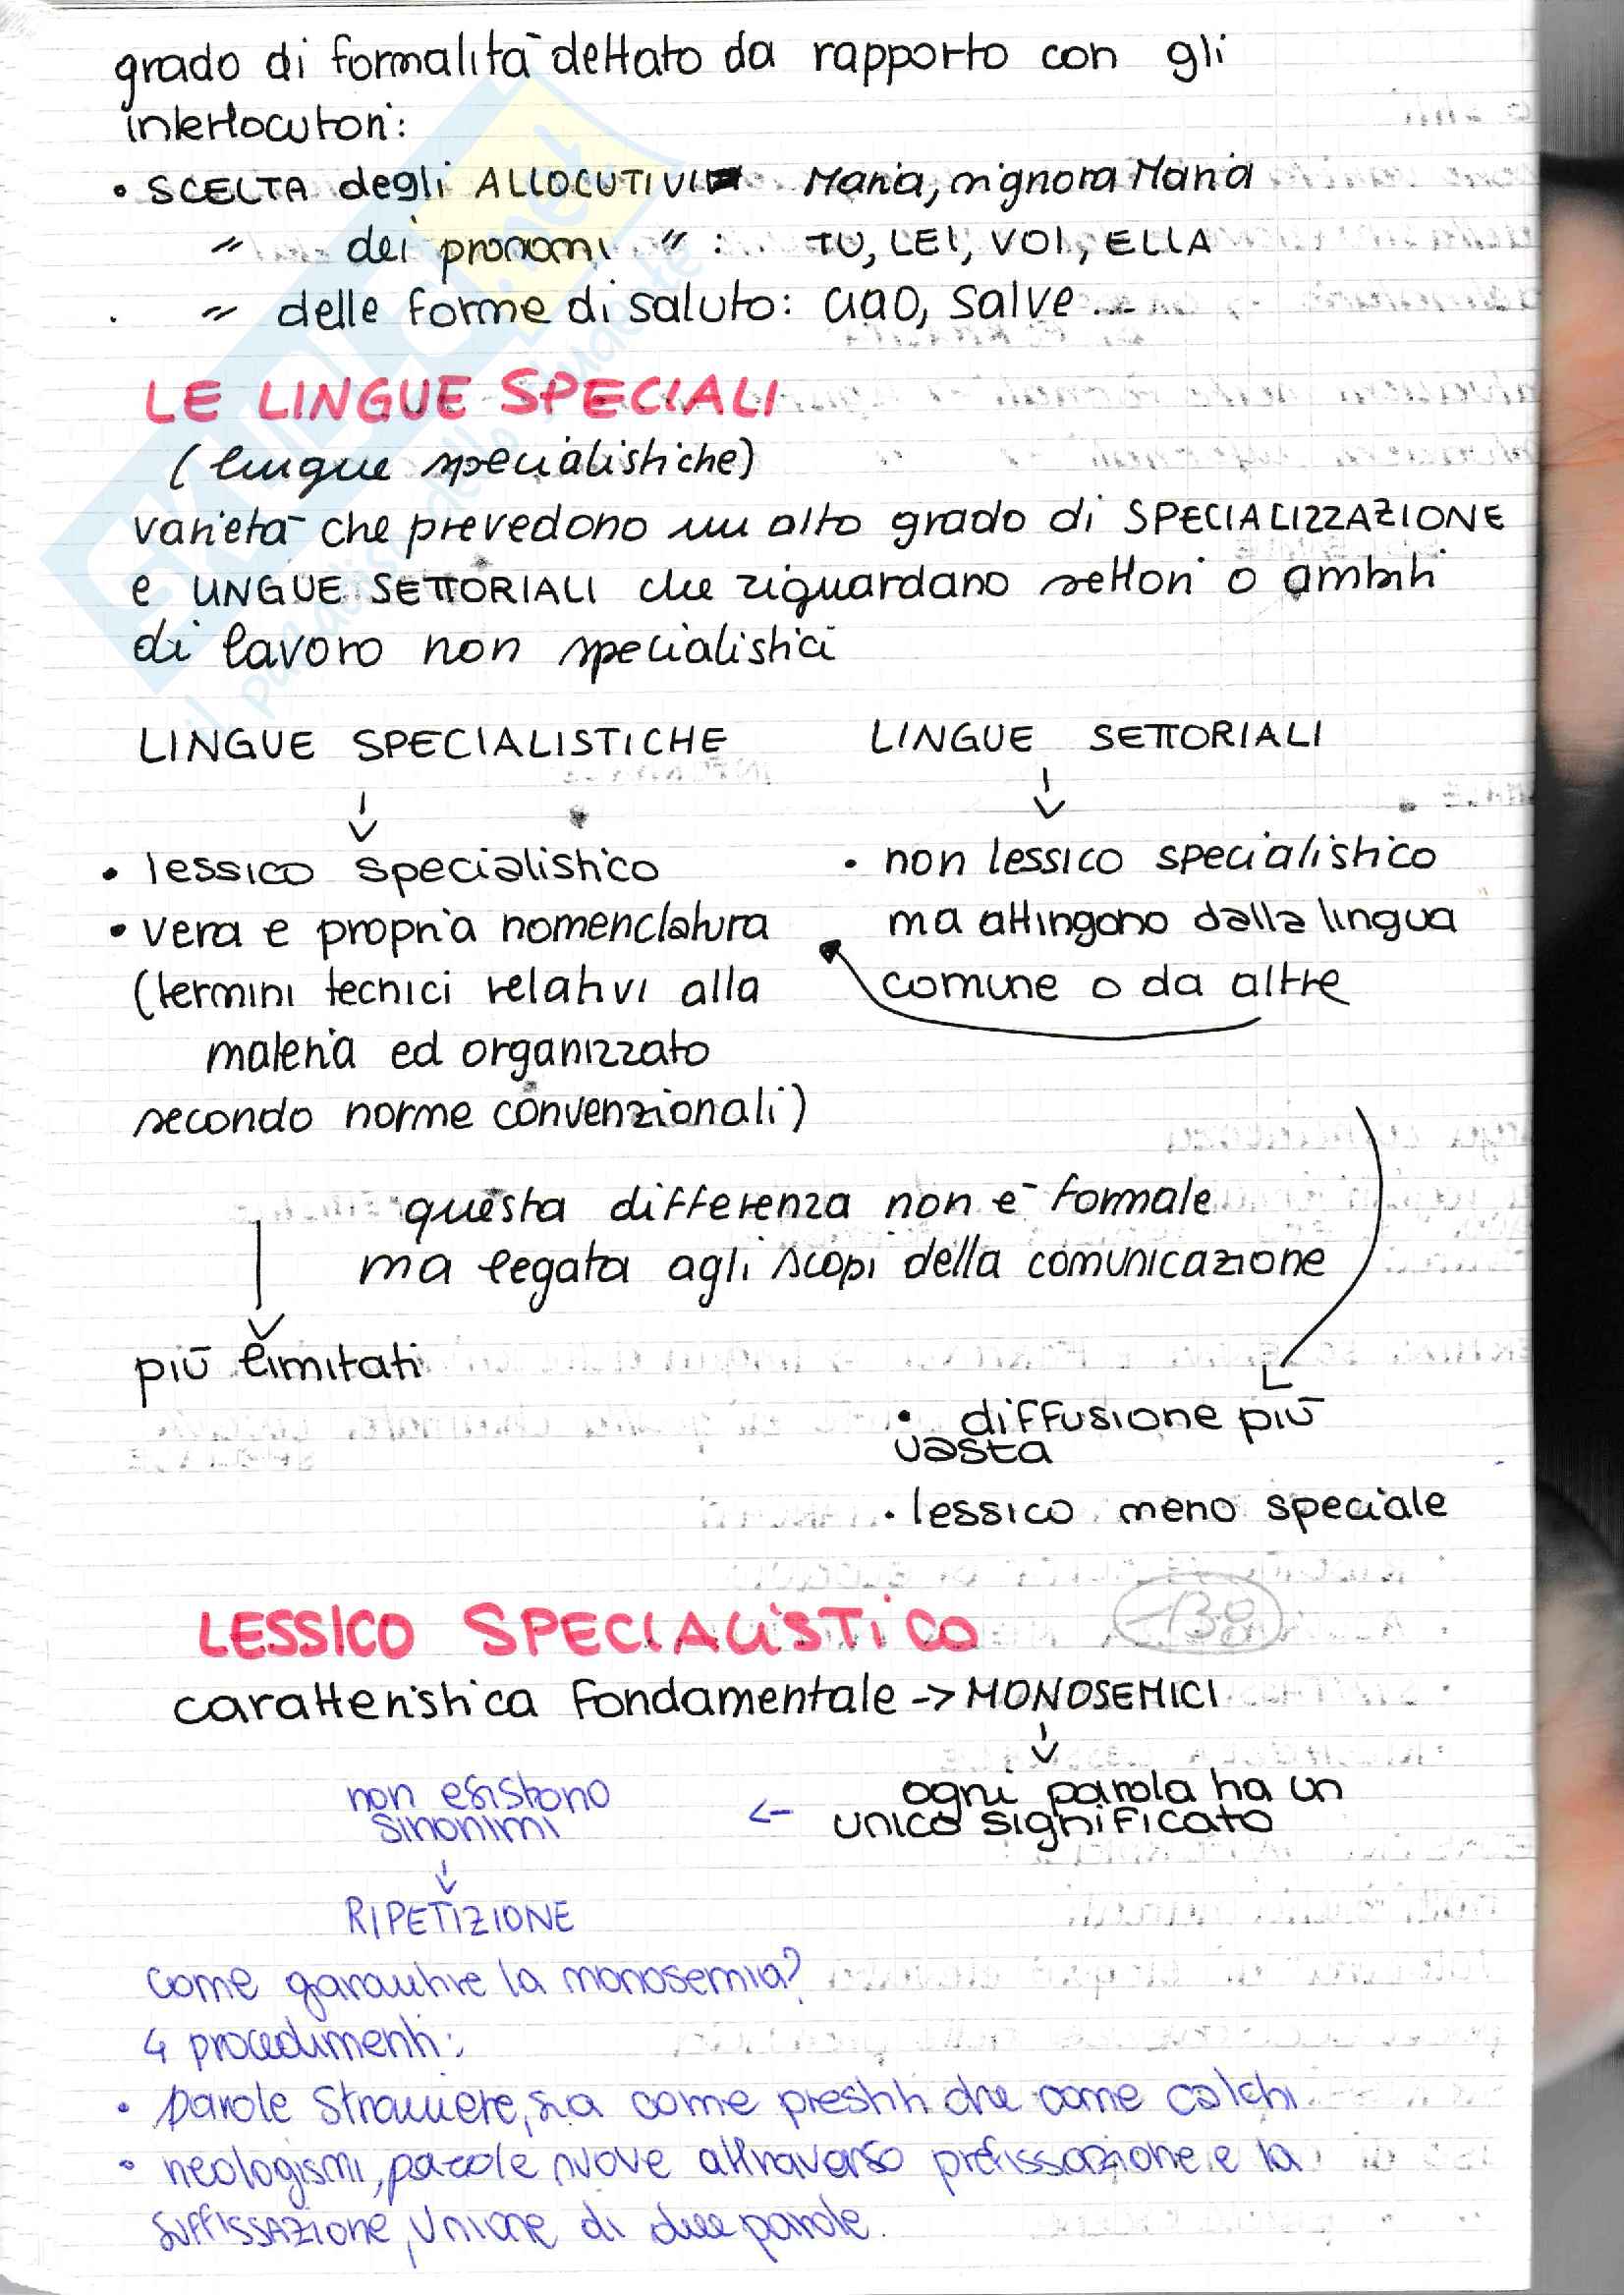 grado di formalità dettato da rapporto con gli
interlocutori:
• SCELTA degli ALLOCUTIVI Maria, signora Maria
" dei pronomi " : TU, LEI, VOI, ELLA
" delle forme di saluto: ciao, salve...
LE LINGUE SPECIALI
(lingue specialistiche)
varietà che prevedono un alto grado di SPECIALIZZAZIONE
e LINGUE SETTORIALI che riguardano settori o ambiti
di lavoro non specialistici
LINGUE SPECIALISTICHE LINGUE SETTORIALI
↓ ↓
• lessico specialistico • non lessico specialistico
• vera e propria nomenclatura ma attingono dalla lingua
(termini tecnici relativi alla comune o da altre
materia ed organizzato
secondo norme convenzionali)
questa differenza non è formale
ma legata agli scopi della comunicazione
più limitati
• diffusione più
vasta
• lessico meno speciale
LESSICO SPECIALiSTiCO
caratteristica fondamentale -> MONOSEMICI
↓
non esistono <- ogni parola ha un
sinonimi unico significato
↓
RIPETIZIONE
come garantire la monosemia?
4 procedimenti:
• parole straniere, sia come prestiti che come calchi
• neologismi, parole nuove attraverso prefissazione e la
suffissazione, unione di due parole.